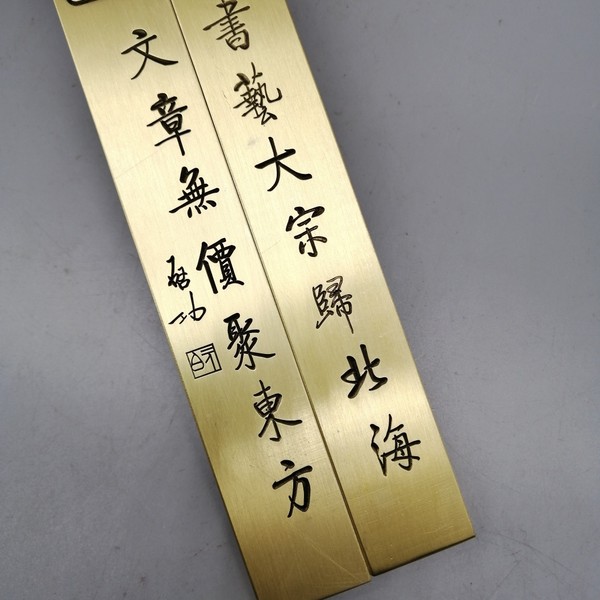 書藝大宗歸北海
文章無價聚東方
啟功